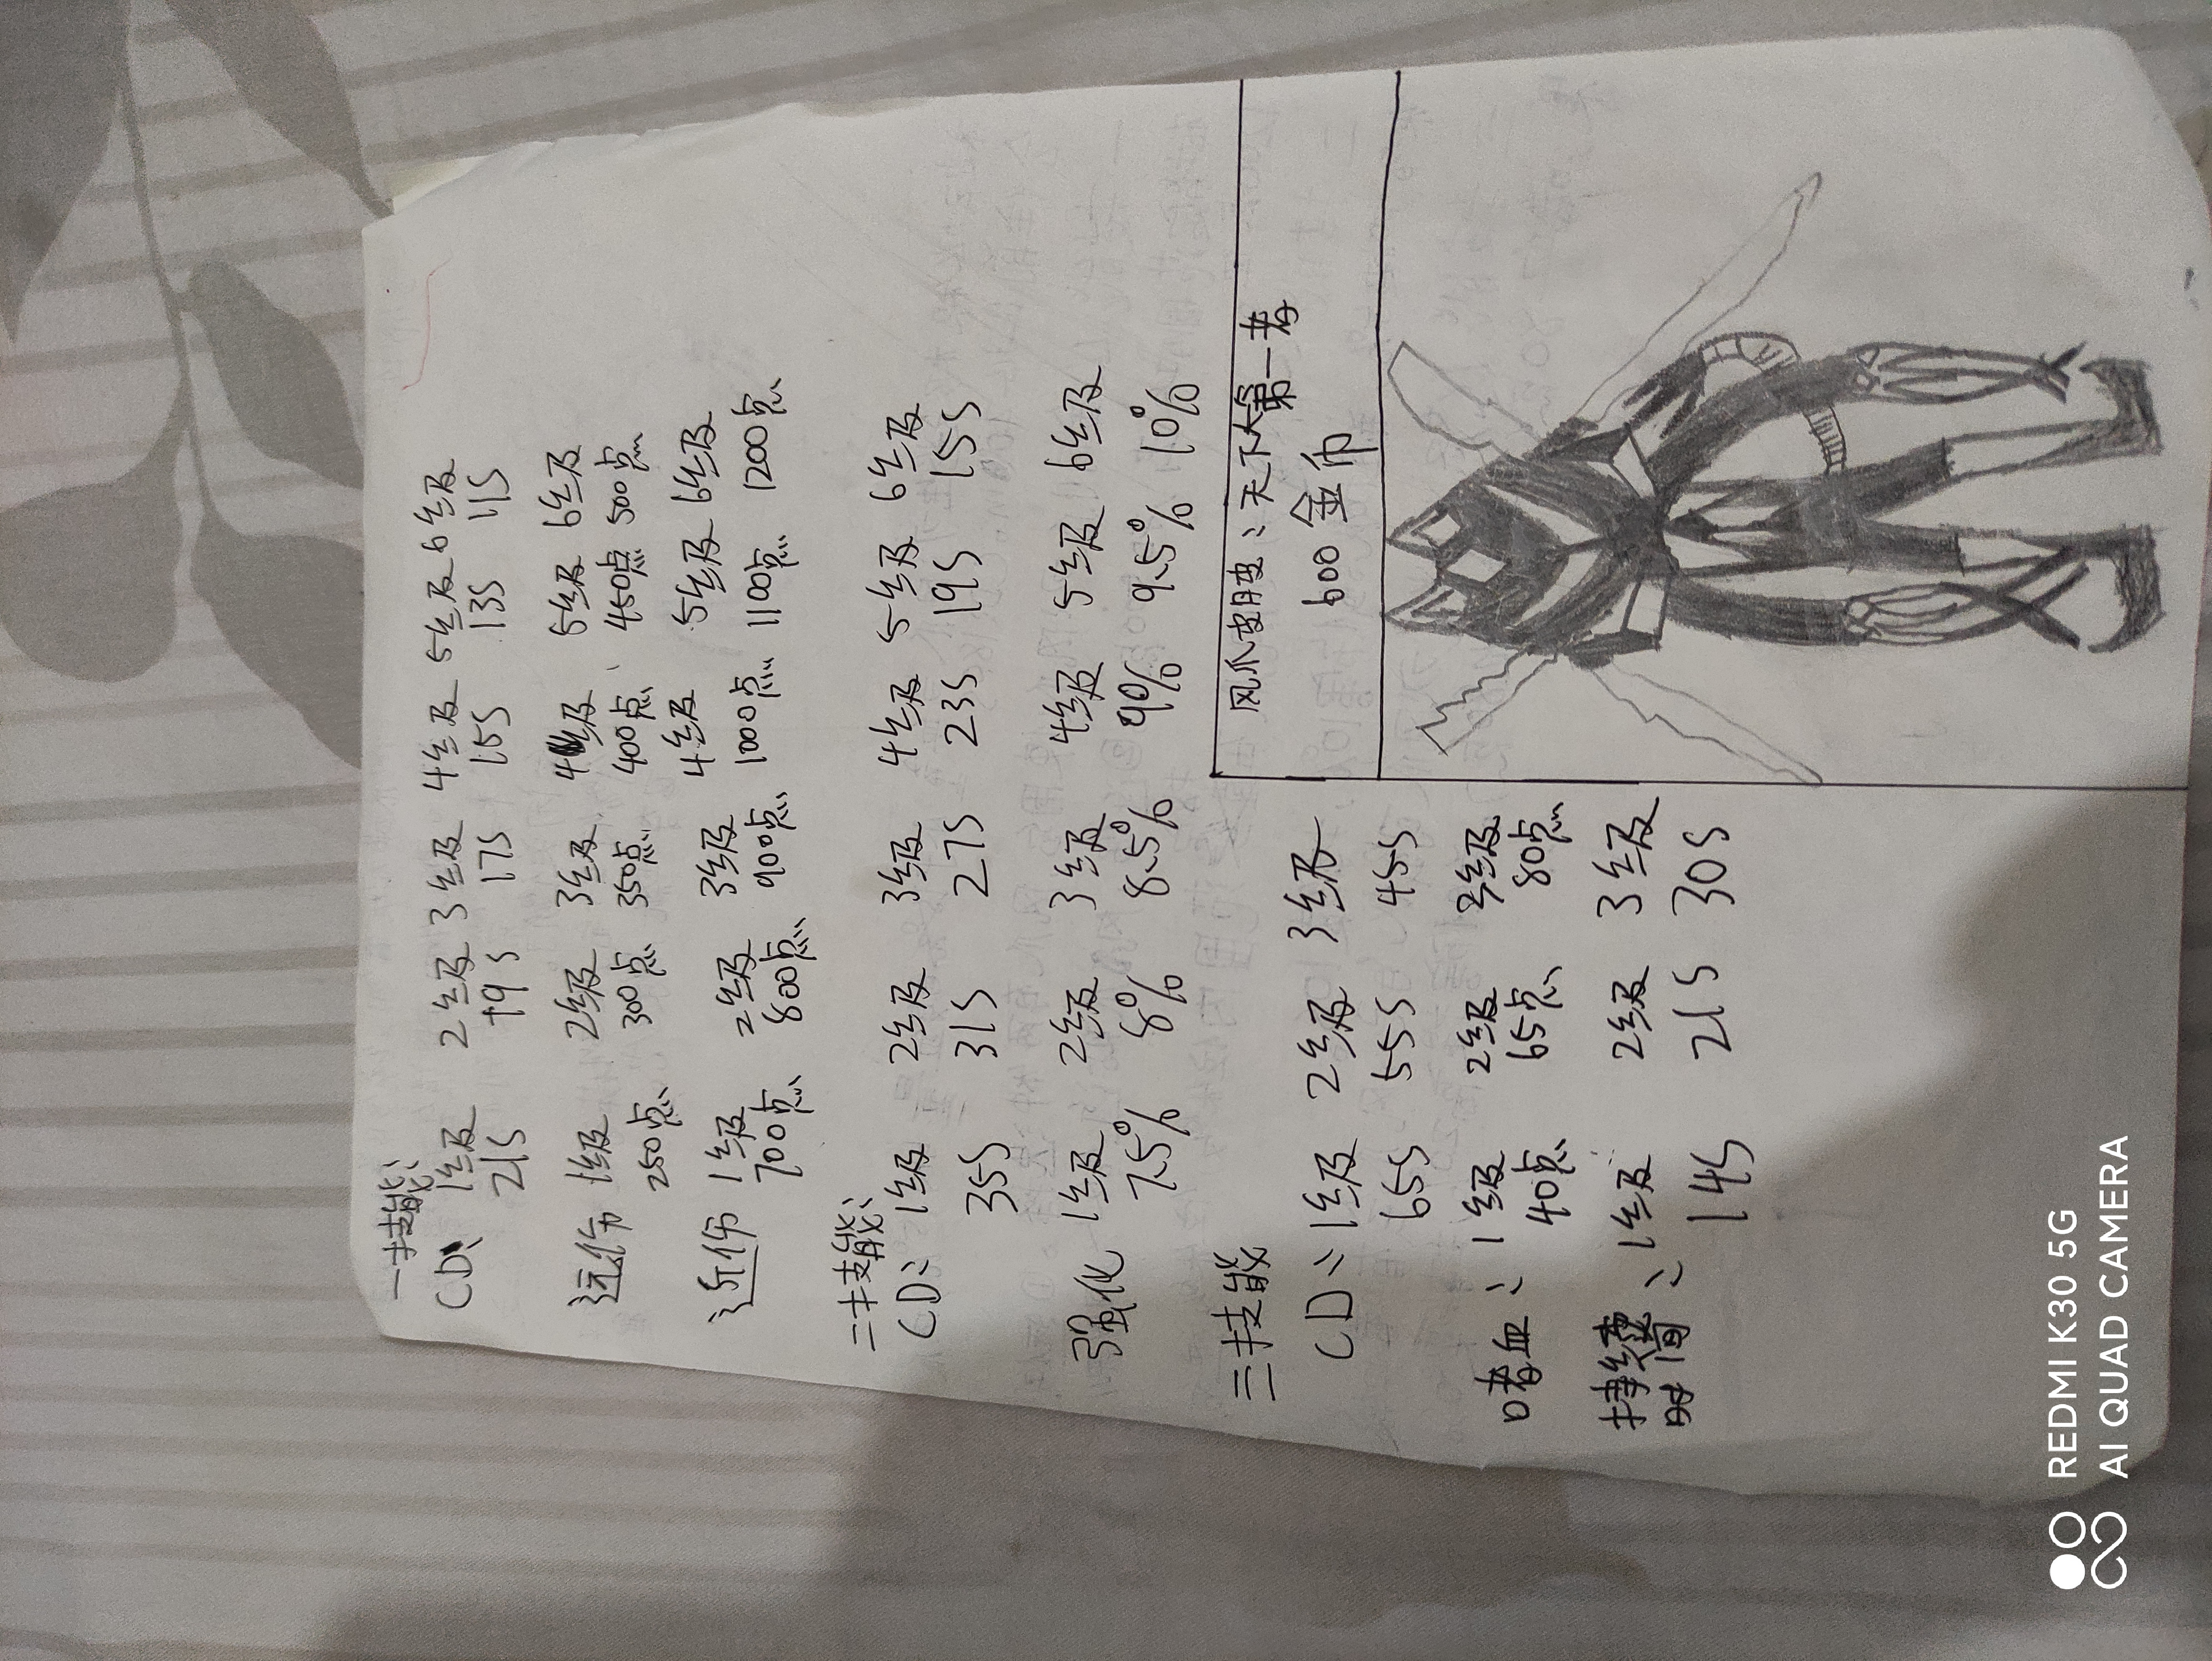 一技能:
CD: 1级 2级 3级 4级 5级 6级
21S 19S 17S 15S 13S 11S
远伤 1级 2级 3级 4级 5级 6级
250点 300点 350点 400点 450点 500点
近伤 1级 2级 3级 4级 5级 6级
700点 800点 900点 1000点 1100点 1200点
二技能:
CD: 1级 2级 3级 4级 5级 6级
35S 31S 27S 23S 19S 15S
强化 1级 2级 3级 4级 5级 6级
7.5% 8% 8.5% 9% 9.5% 10%
三技能
CD: 1级 2级 3级
65S 55S 45S
嗜血: 1级 2级 3级
40点 65点 80点
持续时间: 1级 2级 3级
14S 21S 30S
风爪皮肤: 天下第一
600金币
REDMI K30 5G
AI QUAD CAMERA